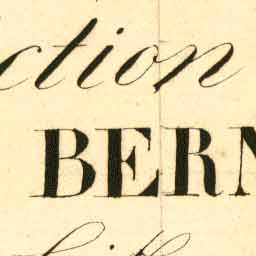 ction
BERN